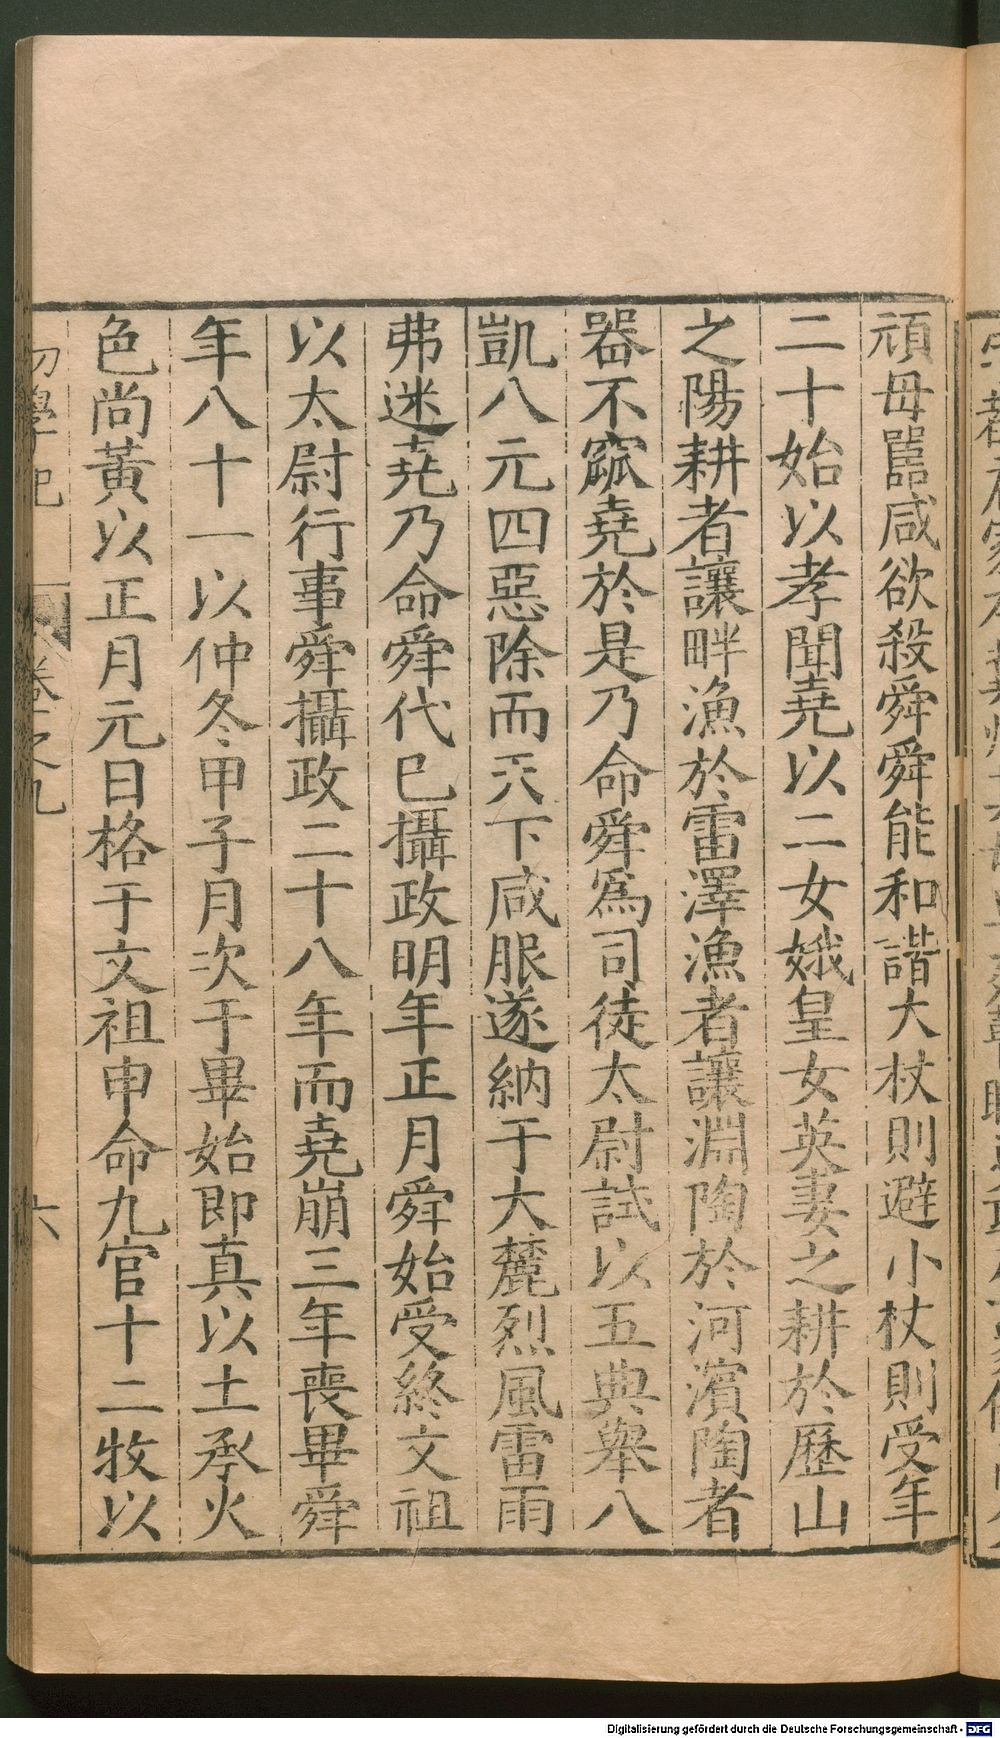 頑母嚚咸欲殺舜舜能和諧大杖則避小杖則受年
二十始以孝聞堯以二女娥皇女英妻之耕於歷山
之陽耕者讓畔漁於雷澤漁者讓淵陶於河濱陶者
器不窳堯於是乃命舜為司徒太尉試以五典舉八
凱八元四惡除而天下咸服遂納于大麓烈風雷雨
弗迷堯乃命舜代已攝政明年正月舜始受終文祖
以太尉行事舜攝政二十八年而堯崩三年喪畢舜
年八十一以仲冬甲子月次于畢始即真以土承火
色尚黃以正月元日格于文祖申命九官十二牧以
初學記
卷之九
六
Digitalisierung gefördert durch die Deutsche Forschungsgemeinschaft - DFG